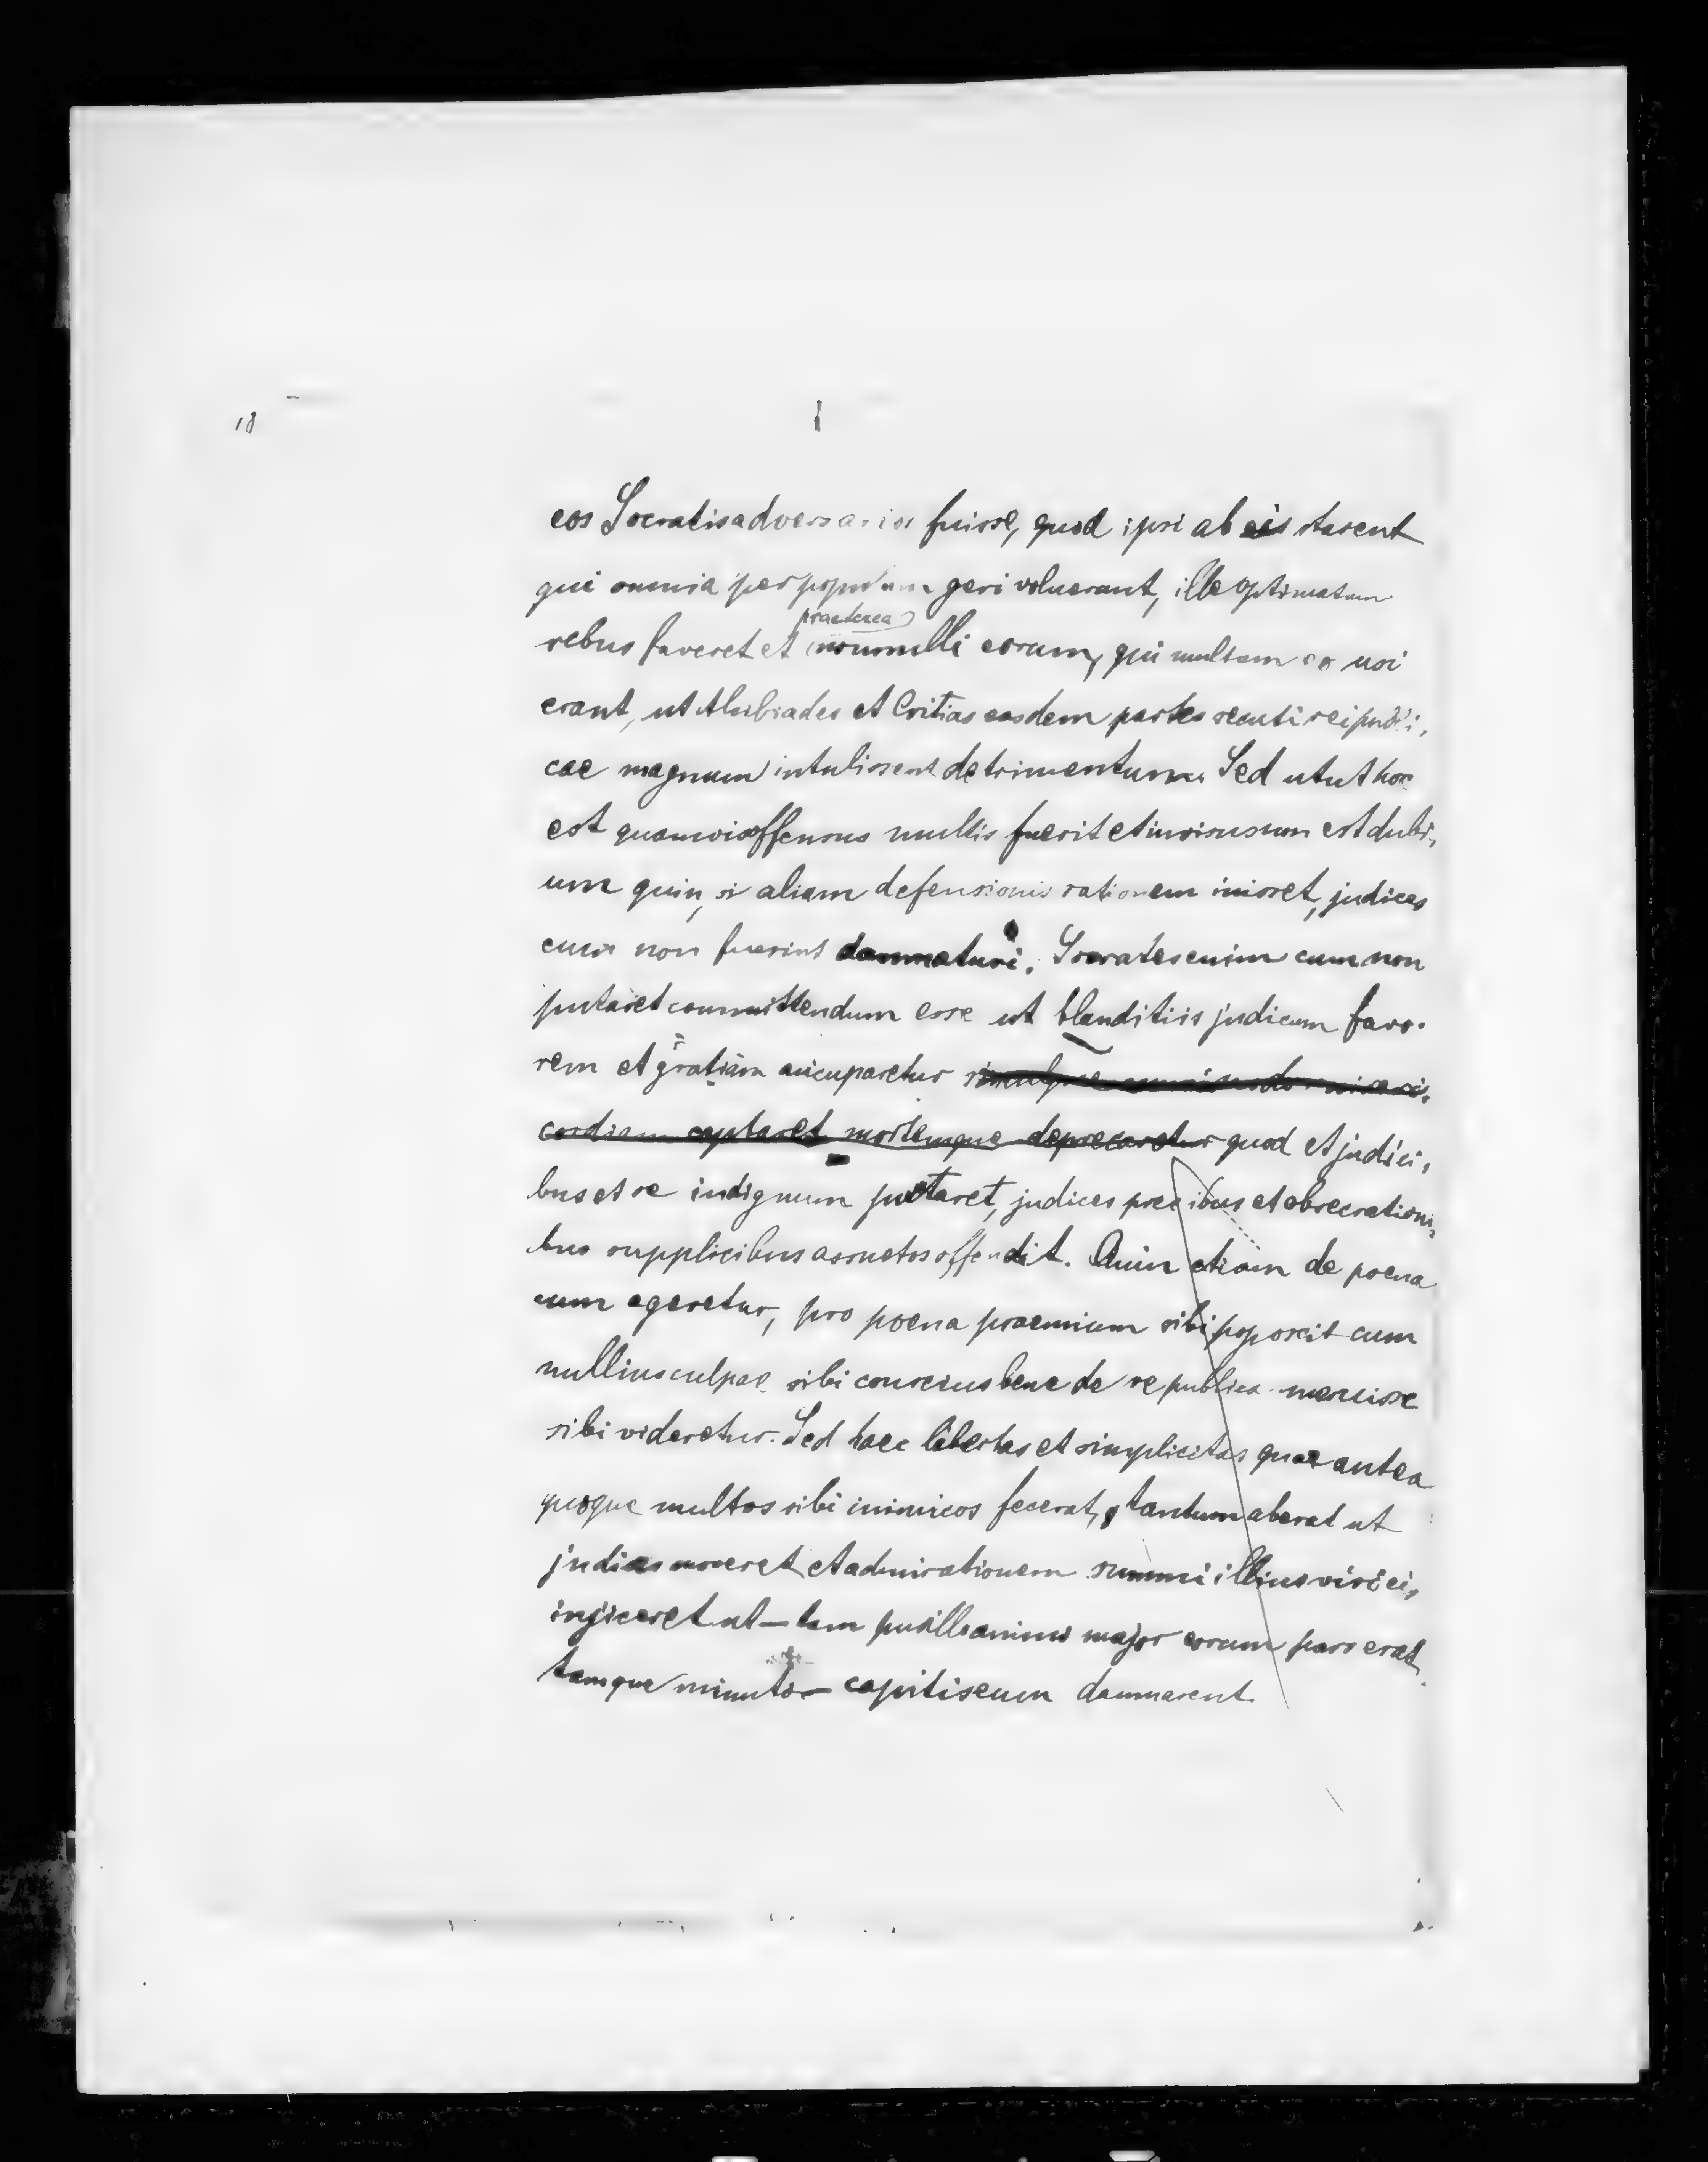 18
eos Socratis adversarios fuisse, quod ipsi ab eis starent
qui omnia per populum geri voluerant, ille optimatum
praeterea
rebus faveret et nonnulli eorum, qui multum eo usi
erant, ut Alcibiades et Critias easdem partes secuti reipubli,
cae magnum intulissent detrimentum. Sed utut hoc
est quamvis offensus multis fuerit et invisus non est dubi,
um quin, si aliam defensionis rationem inisset, judices
eum non fuerint damnaturi. Socrates enim cum non
putaret committendum esse ut blanditiis judicum favo-
rem et gratiam aucuparetur miseri,
cordiam captaret mortemque deprecaretur quod et judici,
bus et se indignum putaret, judices precibus et obsecrationi,
bus supplicibus assuetos offendit. Quin etiam de poena
cum ageretur, pro poena praemium sibi poposcit cum
nullius culpae sibi conscius bene de republica meruisse
sibi videretur. Sed haec libertas et simplicitas quae antea
quoque multos sibi inimicos fecerat, tantum aberat ut
judices moveret et admirationem summi illius viri eis
injiceret ut – tam pusillo animo major eorum pars erat
tamque minuto – capitis eum damnarent